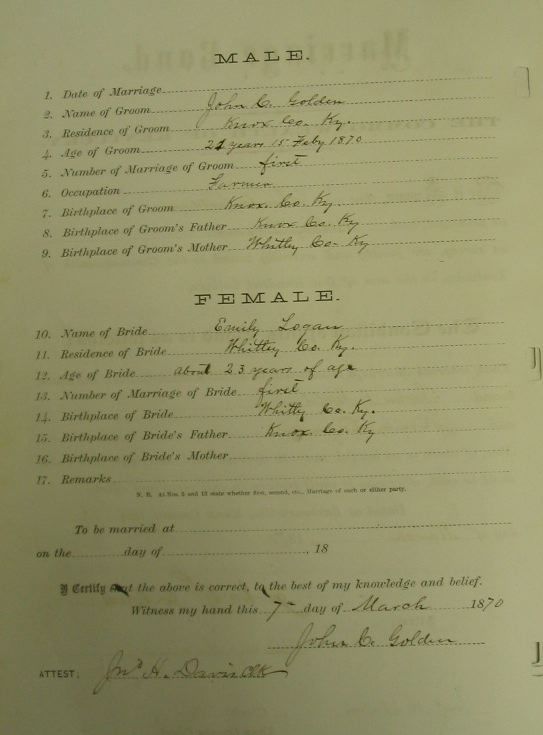 MALE.
1. Date of Marriage
2. Name of Groom John C. Golden
3. Residence of Groom Knox Co. Ky.
4. Age of Groom 21 years 15 Feby 1870
5. Number of Marriage of Groom first
6. Occupation Farmer
7. Birthplace of Groom Knox. Co. Ky.
8. Birthplace of Groom's Father Knox Co. Ky
9. Birthplace of Groom's Mother Whitley Co. Ky
FEMALE.
10. Name of Bride Emily Logan
11. Residence of Bride Whitley Co. Ky.
12. Age of Bride about 23 years of age
13. Number of Marriage of Bride first
14. Birthplace of Bride Whitly Co. Ky.
15. Birthplace of Bride's Father Knox Co. Ky
16. Birthplace of Bride's Mother
17. Remarks
N. B. At Nos. 5 and 13 state whether first, second, etc., Marriage of each or either party.
To be married at
on the day of , 18
I Certify that the above is correct, to the best of my knowledge and belief.
Witness my hand this 7 day of March 1870
John C. Golden
ATTEST: Jno H. Davis Clk